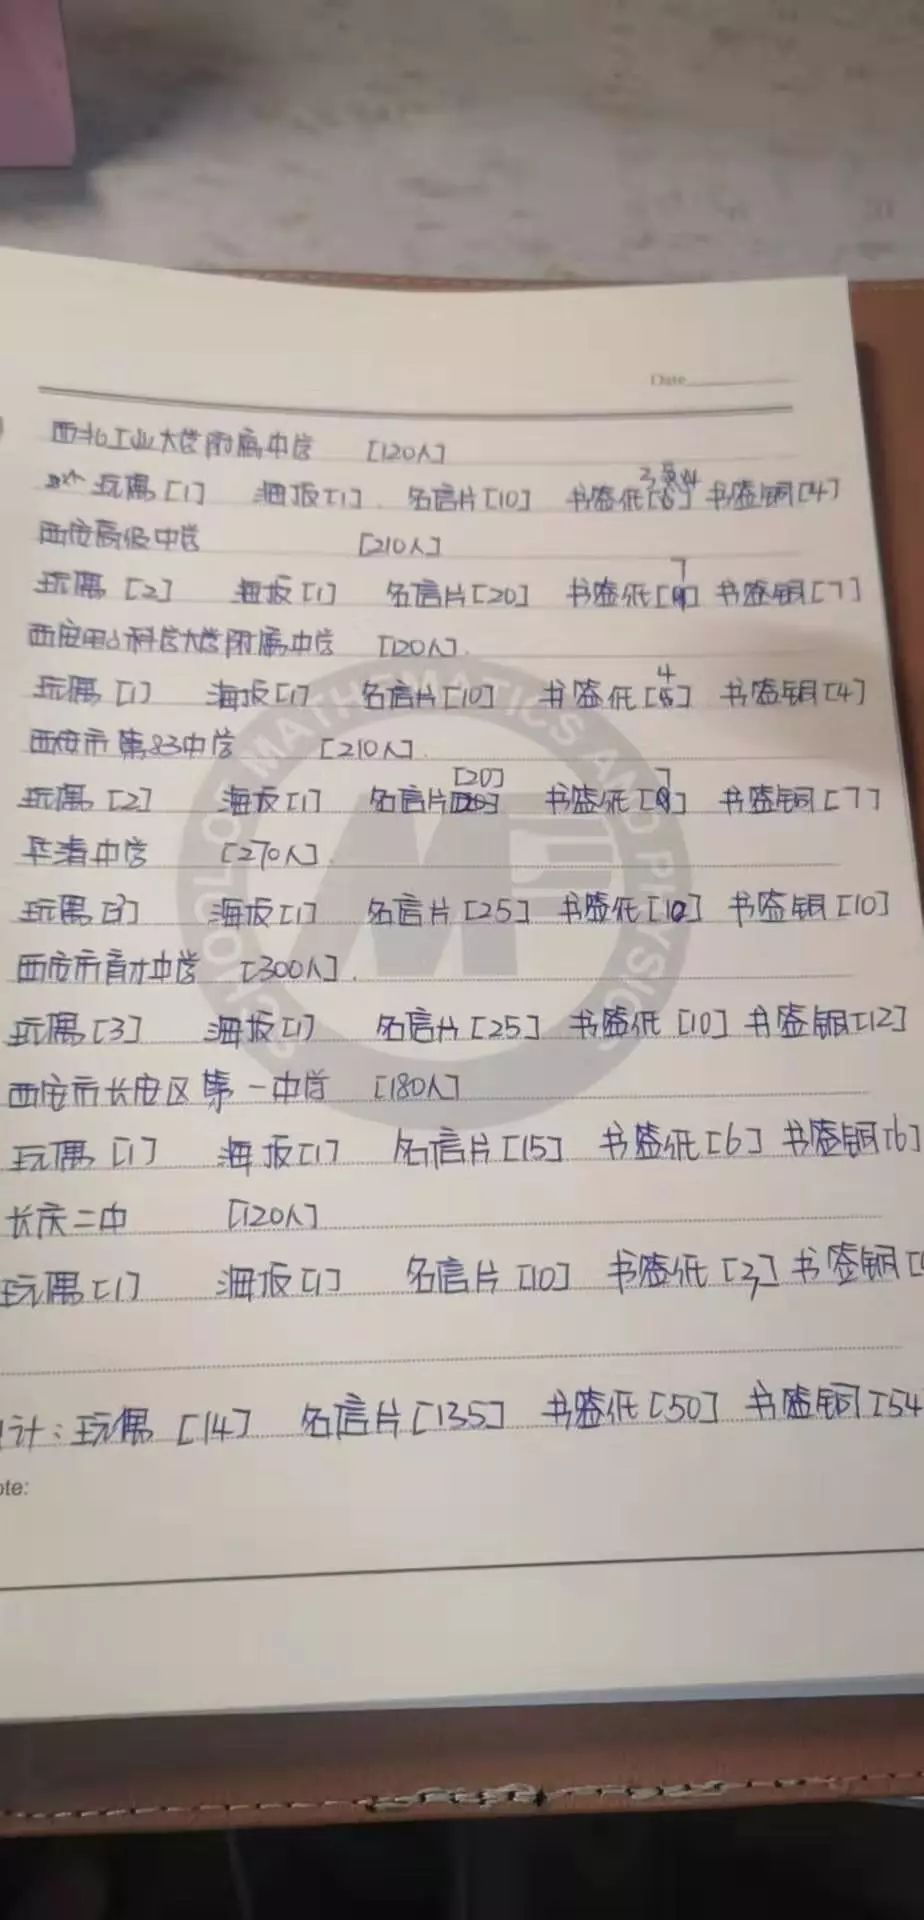 Date
西北工业大学附属中学 [120人]
玩偶[1] 海报[1] 名信片[10] 书签纸 书签铜[4]
西安高级中学 [210人]
玩偶[2] 海报[1] 名信片[20] 书签纸[7] 书签铜[7]
西安电子科技大学附属中学 [120人]
玩偶[1] 海报[1] 名信片[10] 书签纸[4] 书签铜[4]
西安市第83中学 [210人]
玩偶[2] 海报[1] 名信片[20] 书签纸[7] 书签铜[7]
华清中学 [270人]
玩偶[3] 海报[1] 名信片[25] 书签纸[10] 书签铜[10]
西安市育才中学 [300人]
玩偶[3] 海报[1] 名信片[25] 书签纸[10] 书签铜[12]
西安市长安区第一中学 [180人]
玩偶[1] 海报[1] 名信片[15] 书签纸[6] 书签铜[6]
长庆二中 [120人]
玩偶[1] 海报[1] 名信片[10] 书签纸 书签铜[
计:玩偶[14] 名信片[135] 书签纸[50] 书签铜[54
ote:
SCHOOL OF MATHEMATICS AND PHYSICS